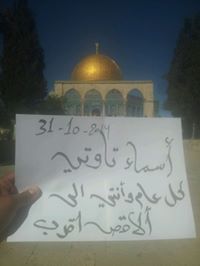 31-10-2014
أسماء تاوتي
كل عام وأنتي الى
الأقصى اقرب